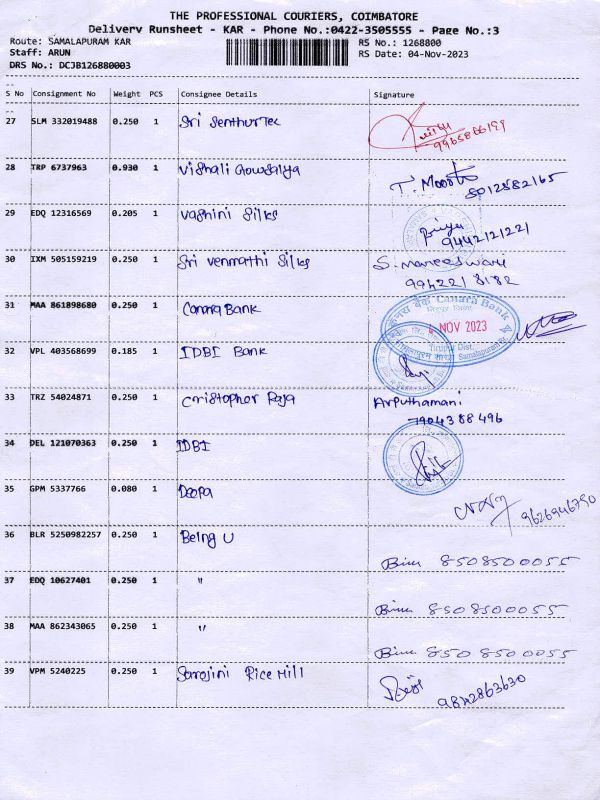 THE PROFESSIONAL COURIERS, COIMBATORE
Delivery Runsheet - KAR - Phone No.:0422-3505555 - Page No.:3
Route: SAMALAPURAM KAR RS No.: 1268800
Staff: ARUN RS Date: 04-Nov-2023
DRS No.: DCJB126880003
S No Consignment No Weight PCS Consignee Details Signature
27 SLM 332019488 0.250 1 Sri Senthur Tex
9965866199
28 TRP 6737963 0.930 1 Vishali Gowsalya T. Moorthi
8012582165
29 EDQ 12316569 0.205 1 Vashini Silks Priya
9442121221
30 IXM 505159219 0.250 1 Sri Venmathi Silks S. maneeswari
994221 8182
31 MAA 861898680 0.250 1 Canara Bank
केनरा बैंक Canara Bank
4 NOV 2023
Tirupur Dist.
32 VPL 403568699 0.185 1 IDBI Bank
33 TRZ 54024871 0.250 1 Cristopher Raja Arputhamani
7904388496
34 DEL 121070363 0.250 1 IDBI
35 GPM 5337766 0.080 1 Deepa
9626946790
36 BLR 5250982257 0.250 1 Being U
8508500055
37 EDQ 10627401 0.250 1 "
8508500055
38 MAA 862343065 0.250 1 "
850 8500055
39 VPM 5240225 0.250 1 Sarojini Rice Mill
9842863630